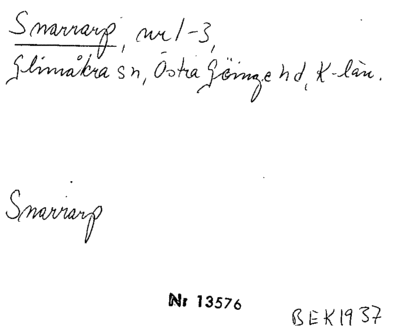 Snarrarp, nr 1-3,
Glimåkra sn, Östra Göinge hd, K-län.
Snarrarp
Nr 13576
BEK1937